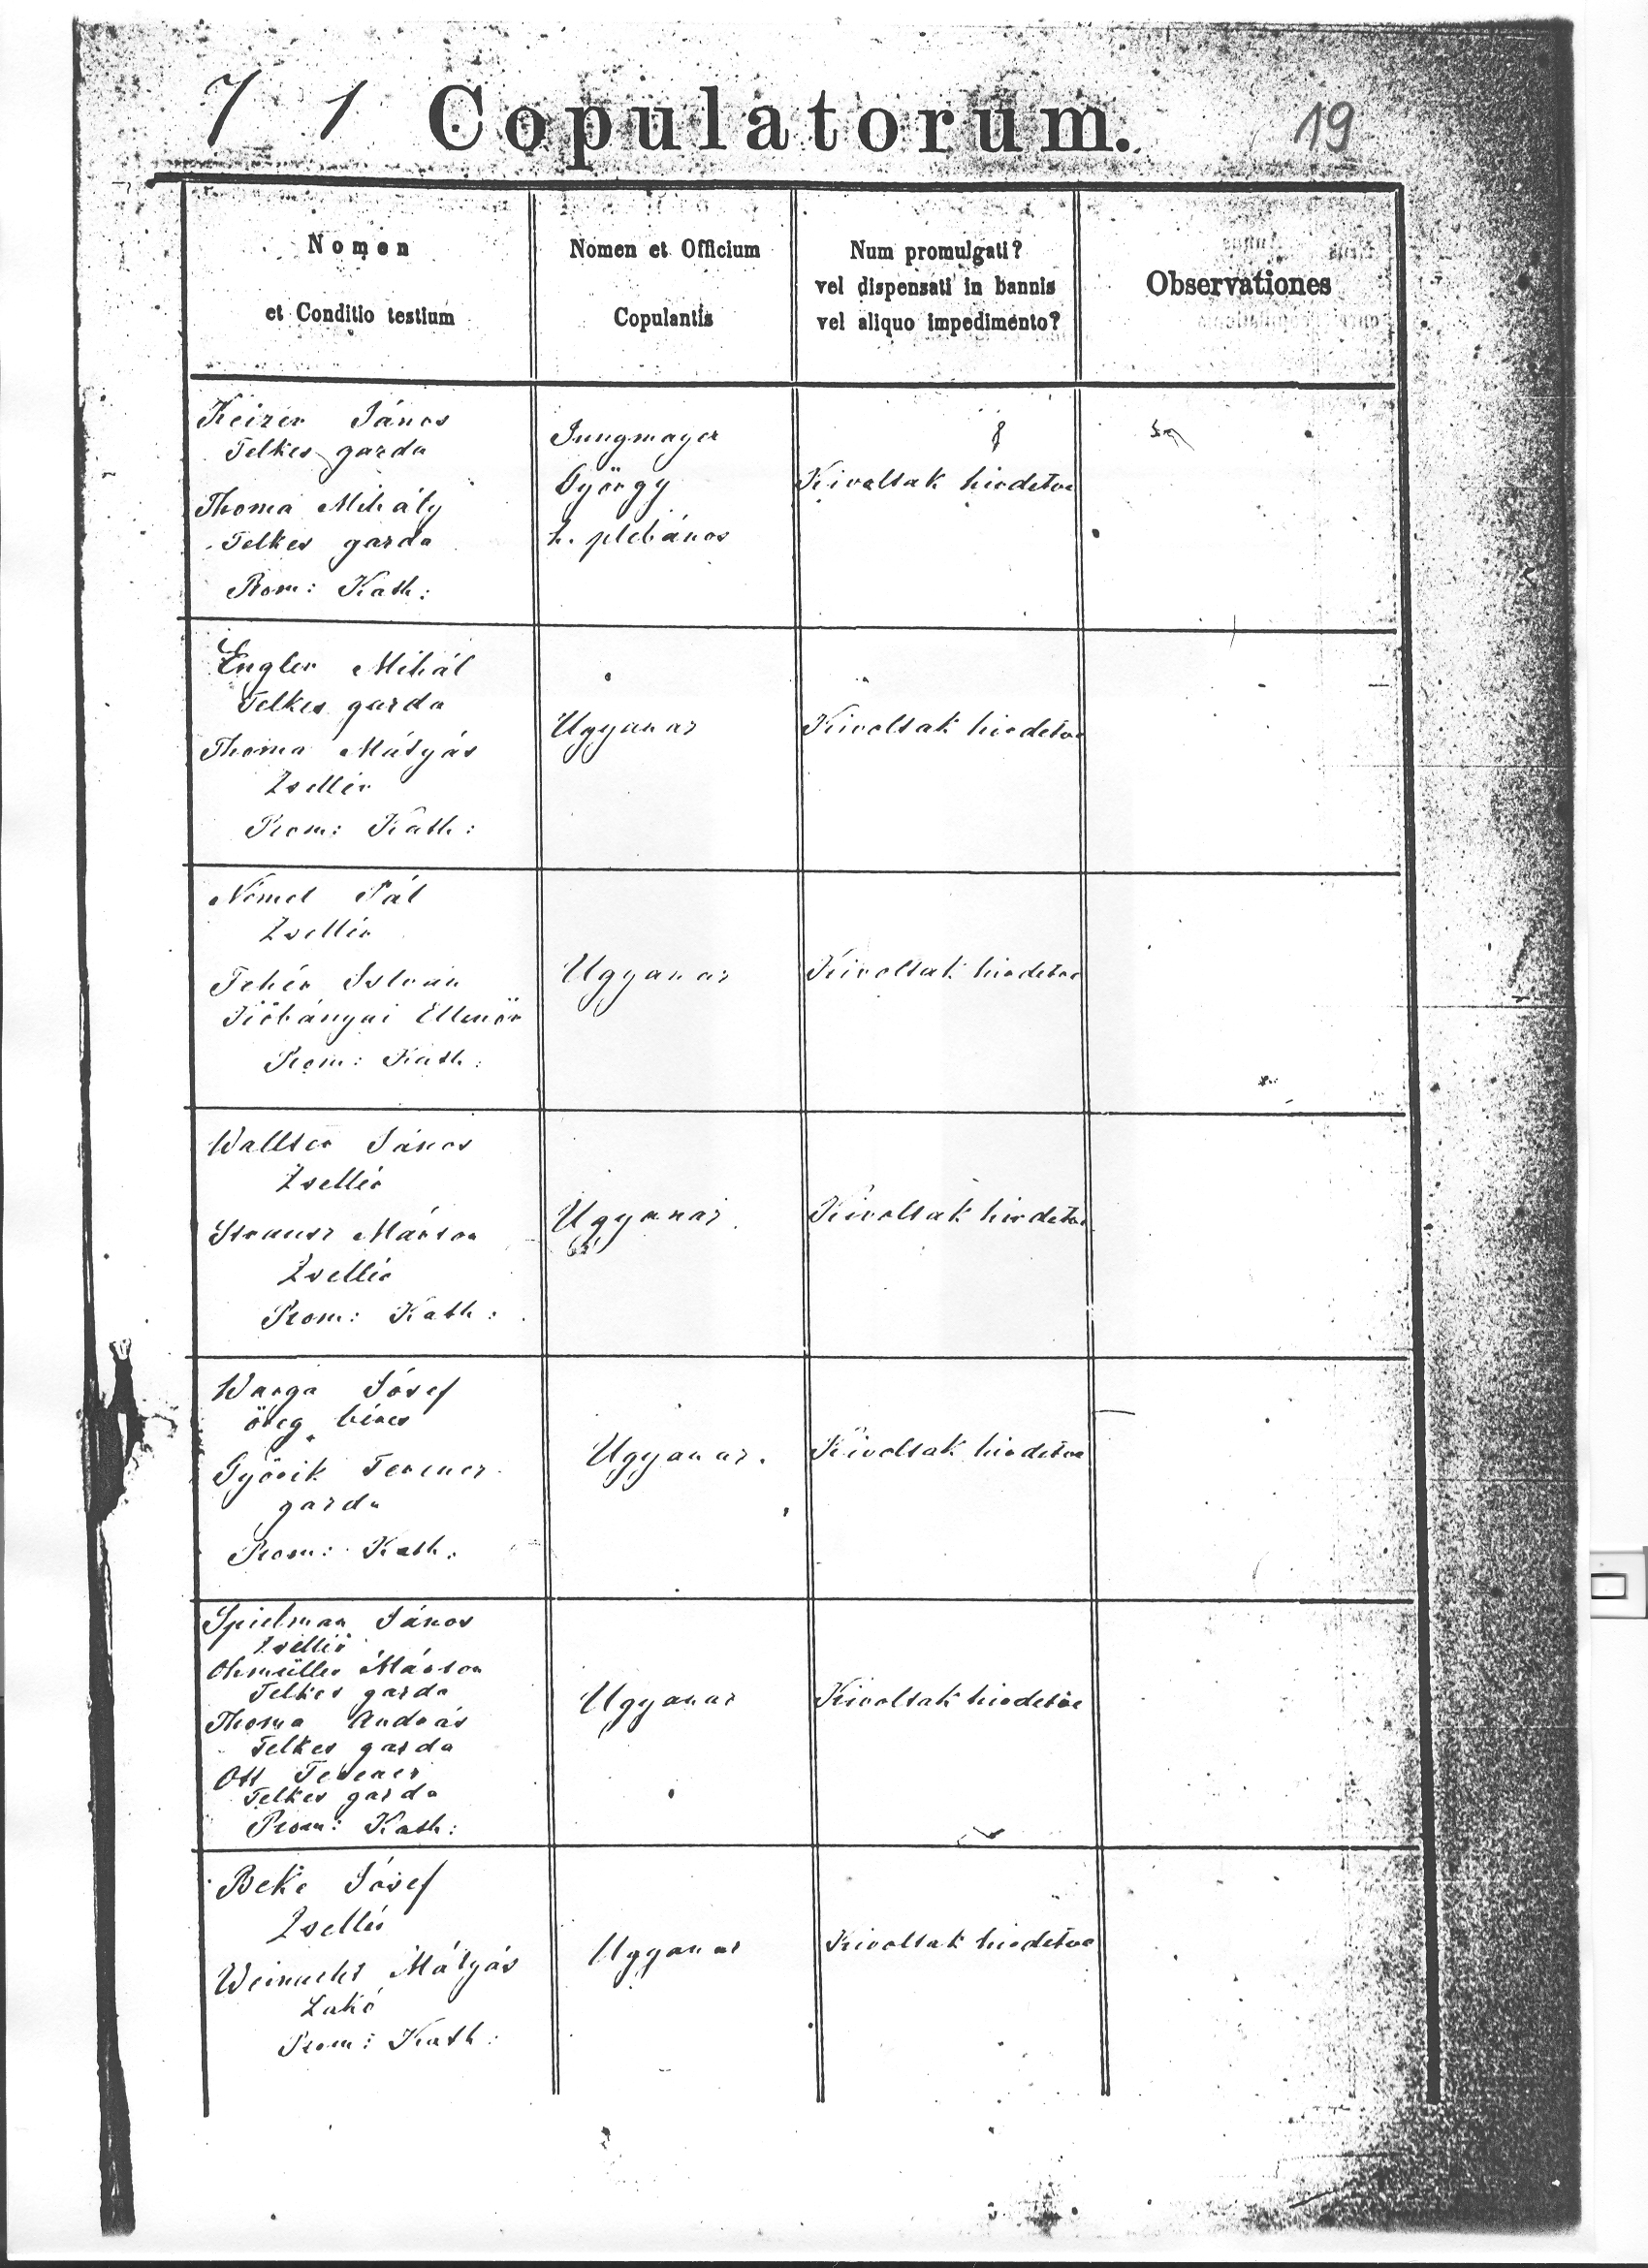 7 1 Copulatorum. 19
Nomen
et Conditio testium
Nomen et Officium
Copulantis
Num promulgati?
vel dispensati in bannis
vel aliquo impedimento?
Observationes
Keizer János
Telkes gazda
Thoma Mihály
Telkes gazda
Rom: Kath:
Jungmayer
György
h. plébános
Kivoltak hirdetve
Engler Mihál
Telkes gazda
Thoma Mátyás
Zsellér
Rom: Kath:
Ugyanaz
Kivoltak hirdetve
Német Pál
Zsellér
Fehér Istvan
Kőbányai Ellenőr
Rom: Kath:
Ugyanaz
Kivoltak hirdetve
Wallter János
Zsellér
Strausz Márton
Zsellér
Rom: Kath:
Ugyanaz
Kivoltak hirdetve
Warga Jósef
öreg béres
Győrik Ferencz
gazda
Rom: Kath:
Ugyanaz.
Kivoltak hirdetve
Spielman János
Zsellér
Ohmüller Márton
Telkes gazda
Thoma András
Telkes gazda
Ott Ferencz
Telkes gazda
Rom: Kath:
Ugyanaz
Kivoltak hirdetve
Beke Jósef
Zsellér
Mátyás
Lakó
Rom: Kath:
Ugyanaz
Kivoltak hirdetve